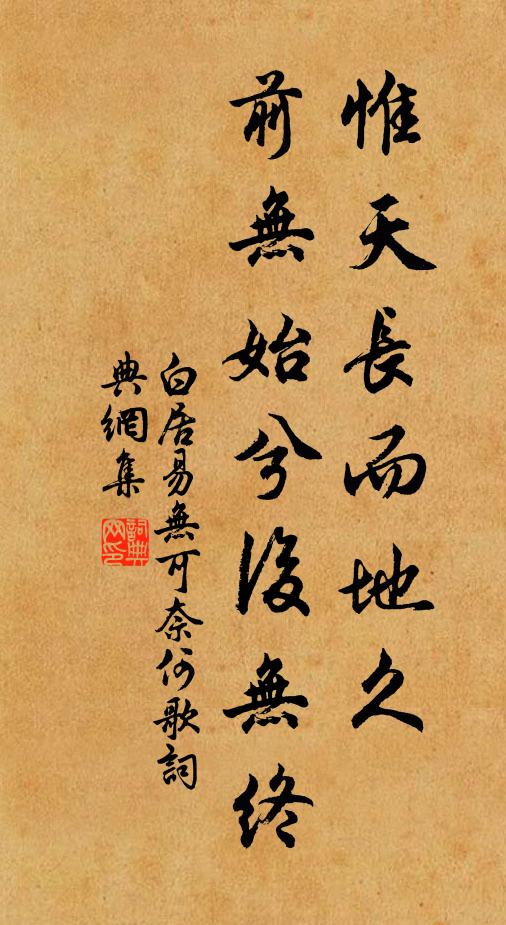 惟天長而地久
前無始兮後無終
白居易無可奈何歌詞
典網集
詞典網印